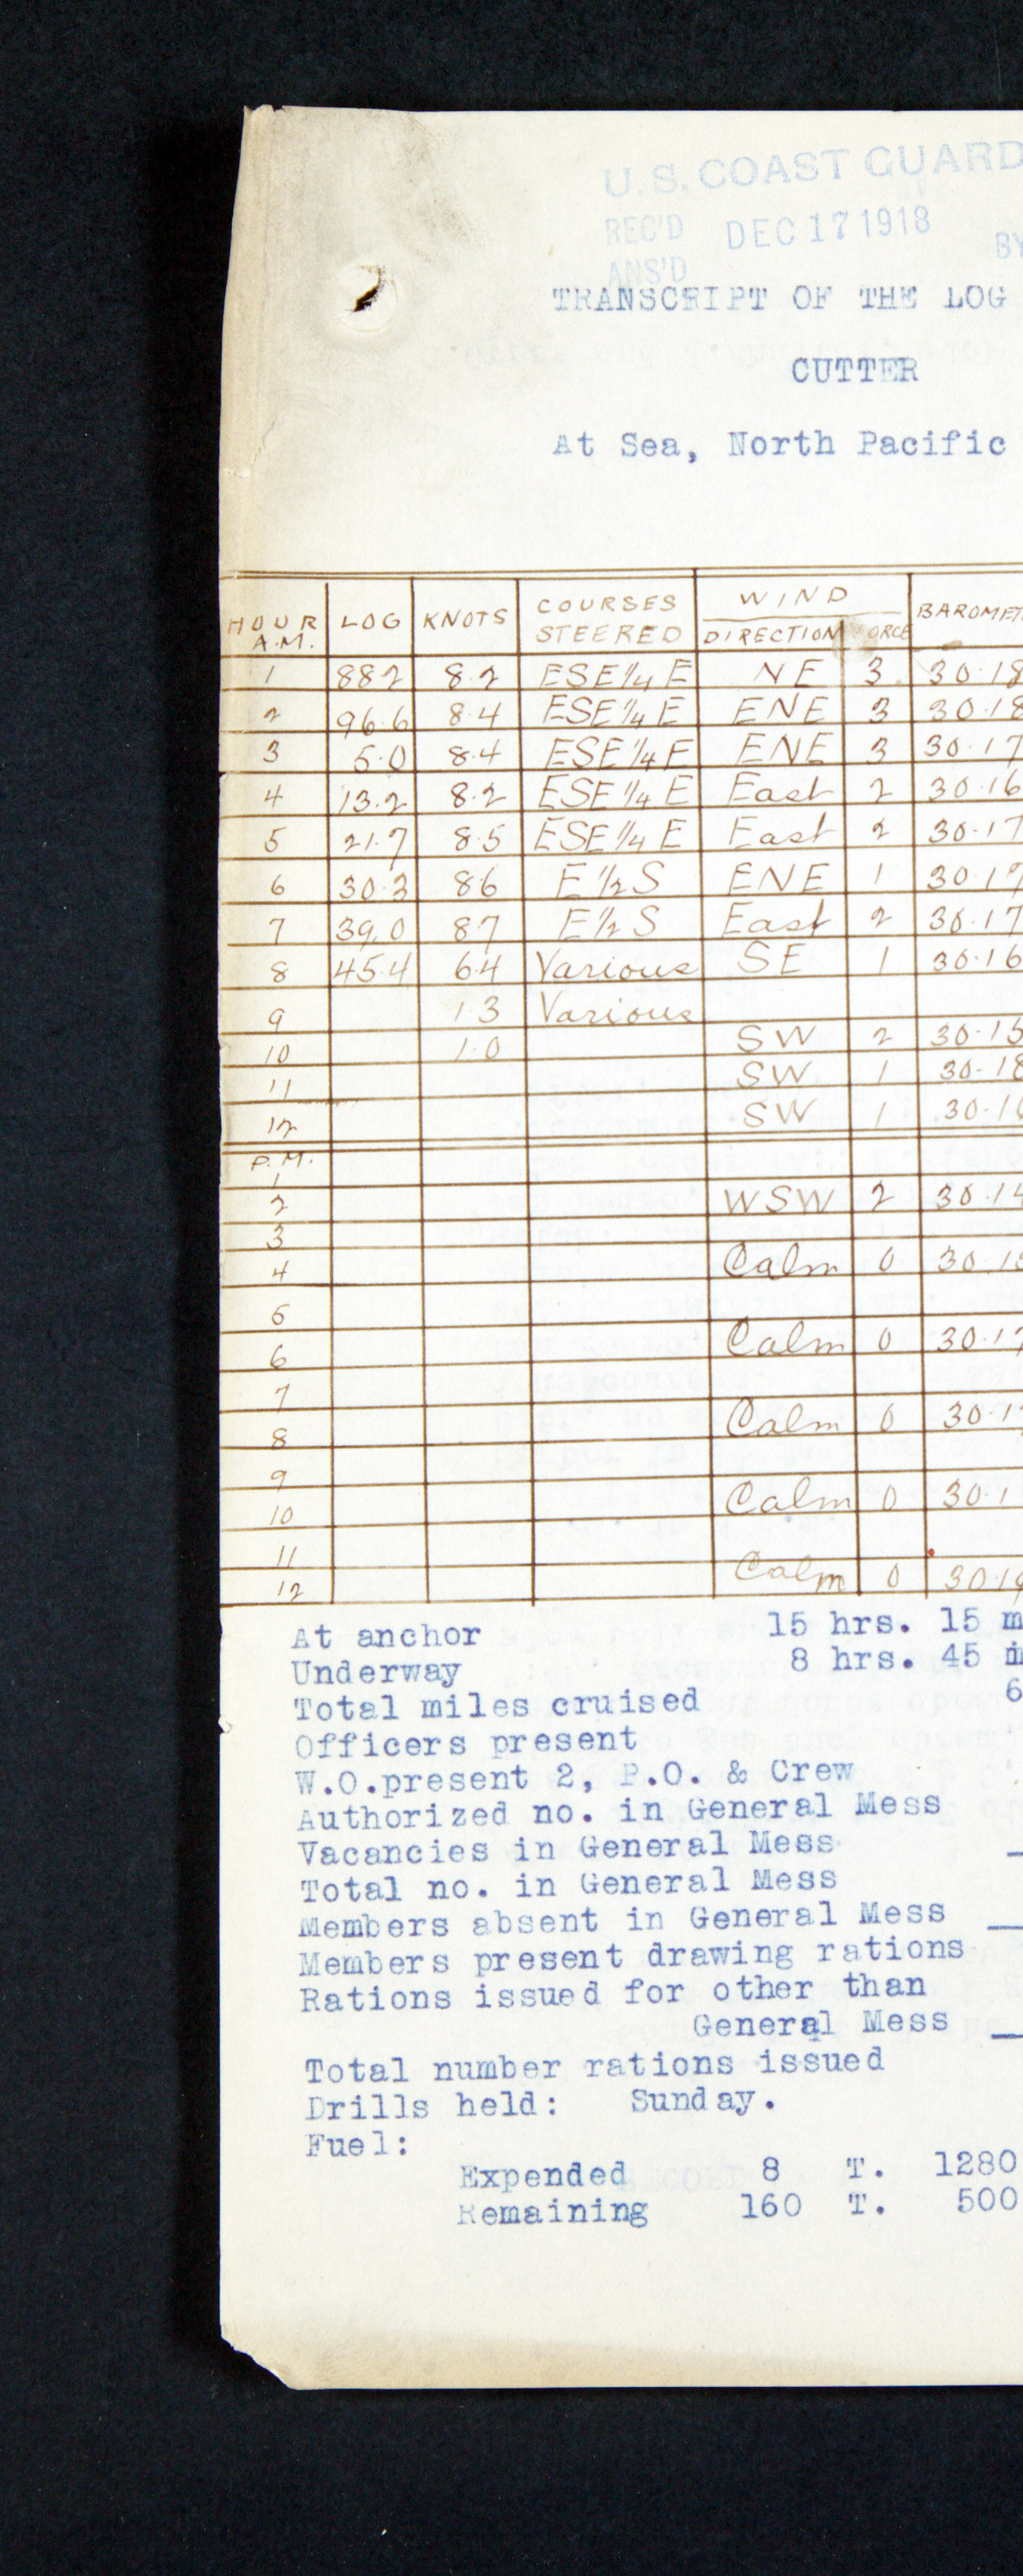 U.S. COAST GUARD
REC'D DEC 17 1918 BY
ANS'D
TRANSCRIPT OF THE LOG
CUTTER
At Sea, North Pacific
HOUR A.M. LOG KNOTS COURSES STEERED WIND DIRECTION FORCE BAROMET
1 88.2 8.2 ESE 1/4 E NE 3 30.18
2 96.6 8.4 ESE 1/4 E ENE 3 30.18
3 5.0 8.4 ESE 1/4 E ENE 3 30.17
4 13.2 8.2 ESE 1/4 E East 2 30.16
5 21.7 8.5 ESE 1/4 E East 2 30.17
6 30.3 8.6 E 1/2 S ENE 1 30.17
7 39.0 8.7 E 1/2 S East 2 30.17
8 45.4 6.4 Various SE 1 30.16
9 1.3 Various
10 1.0 SW 2 30.15
11 SW 1 30.18
12 SW 1 30.1
P.M.
1
2 WSW 2 30.14
3
4 Calm 0 30.1
5
6 Calm 0 30.17
7
8 Calm 0 30.1
9
10 Calm 0 30.1
11
12 Calm 0 30.19
At anchor 15 hrs. 15 m
Underway 8 hrs. 45 m
Total miles cruised 6
Officers present
W.O.present 2, P.O. & Crew
Authorized no. in General Mess
Vacancies in General Mess
Total no. in General Mess
Members absent in General Mess
Members present drawing rations
Rations issued for other than
General Mess
Total number rations issued
Drills held: Sunday.
Fuel:
Expended 8 T. 1280
Remaining 160 T. 500